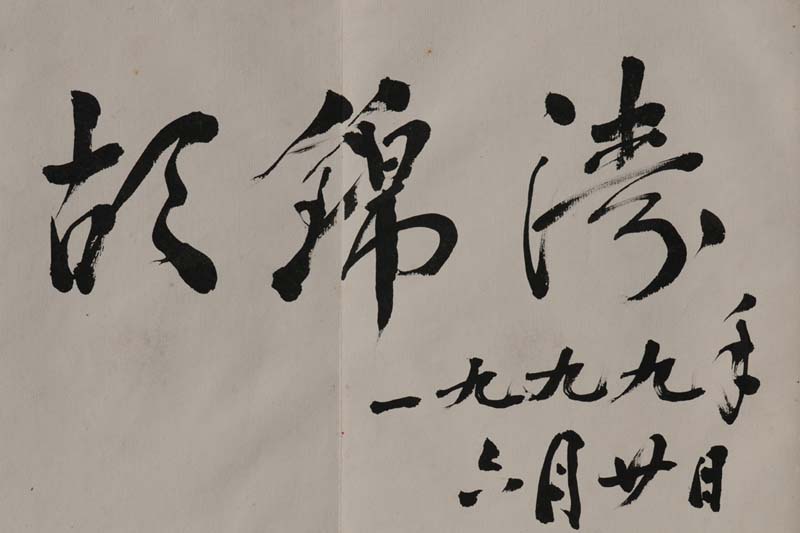 胡锦涛
一九九九年
六月廿日